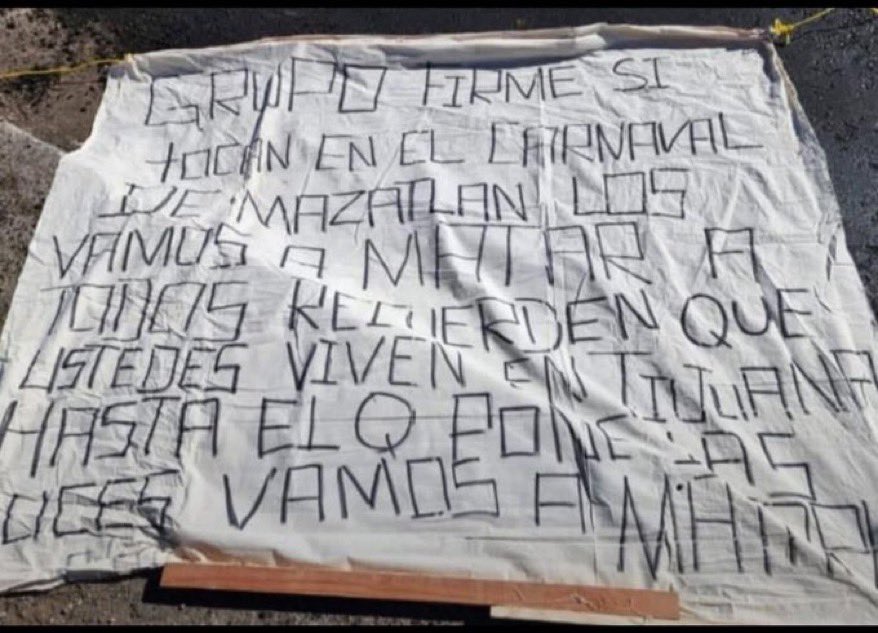 GRUPO FIRME SI
TOCAN EN EL CARNAVAL
DE MAZATLAN LOS
VAMOS A MATAR A
TODOS RECUERDEN QUE
USTEDES VIVEN EN TIJUANA
HASTA EL Q PONE LAS
UCES VAMOS A MATAR